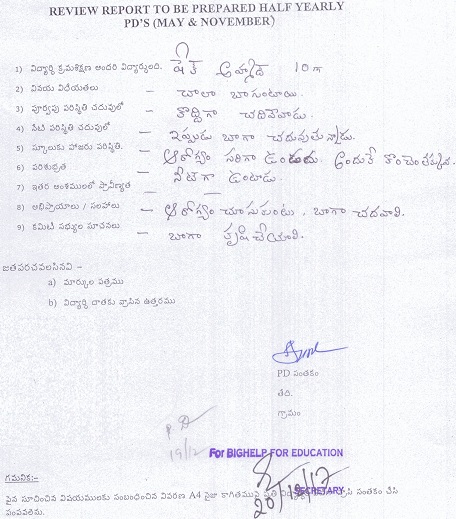 REVIEW REPORT TO BE PREPARED HALF YEARLY
PD'S (MAY & NOVEMBER)
1) విద్యార్థి క్రమశిక్షణ అందరి విద్యార్థులది. షేక్ 10
2) వినయ విధేయతలు – చాలా బాగుంటాయి.
3) పూర్వపు పరిస్థితి చదువులో – కొద్దిగా చదివేవాడు.
4) నేటి పరిస్థితి చదువులో – ఇప్పుడు బాగా చదువుతున్నాడు.
5) స్కూలుకు హాజరు పరిస్థితి. – ఆరోగ్యం సరిగా ఉండదు. అందుకే కొంచెం తక్కువ.
6) పరిశుభ్రత – నీటుగా ఉంటాడు.
7) ఇతర అంశములలో ప్రావీణ్యత –
8) అభిప్రాయాలు / సలహాలు. – ఆరోగ్యం చూసుకుంటు, బాగా చదవాలి.
9) కమిటి సభ్యుల సూచనలు – బాగా కృషి చేయాలి.
జతపరచవలసినవి :-
a) మార్కుల పత్రము
b) విద్యార్థి దాతకు వ్రాసిన ఉత్తరము
PD సంతకం
తేది.
గ్రామం
19/12
For BIGHELP FOR EDUCATION
SECRETARY
20/12/17
గమనిక:-
పైన సూచించిన విషయములకు సంబంధించిన వివరణ A4 సైజు కాగితముపై ప్రతి సంతకం చేసి
పంపవలెను.